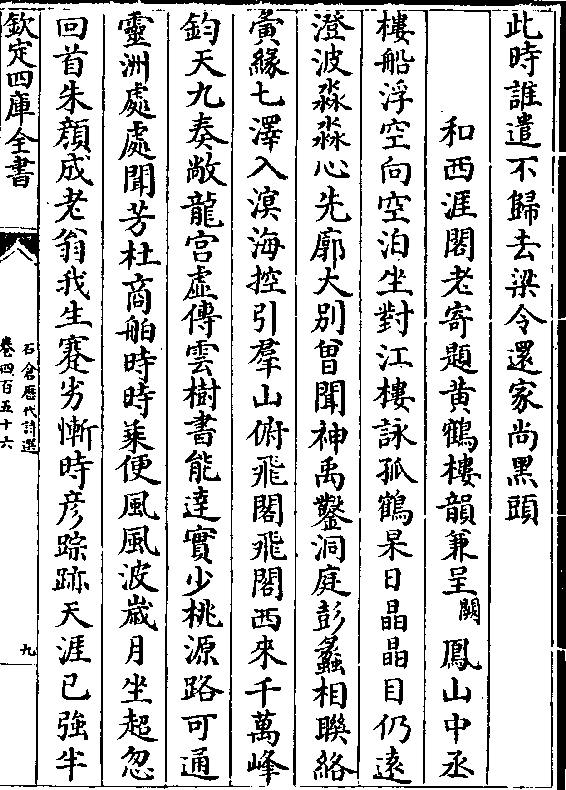 此時誰遣不歸去梁令還家尚黑頭
和西涯閣老寄題黄鶴樓韻兼呈闕鳳山中丞
樓船浮空向空泊坐對江樓詠孤鶴杲日晶晶目仍遠
澄波淼淼心先廓大别曾聞神禹鑿洞庭彭蠡相聯絡
夤緣七澤入溟海控引羣山俯飛閣飛閣西來千萬峰
鈞天九奏敞龍宫虚傳雲樹書能達實少桃源路可通
靈洲處處聞芳杜商舶時時乗便風風波嵗月坐超忽
回首朱顔成老翁我生蹇劣慚時彦踪跡天涯已強半
欽定四庫全書
石倉歴代詩選
卷四百五十六
九